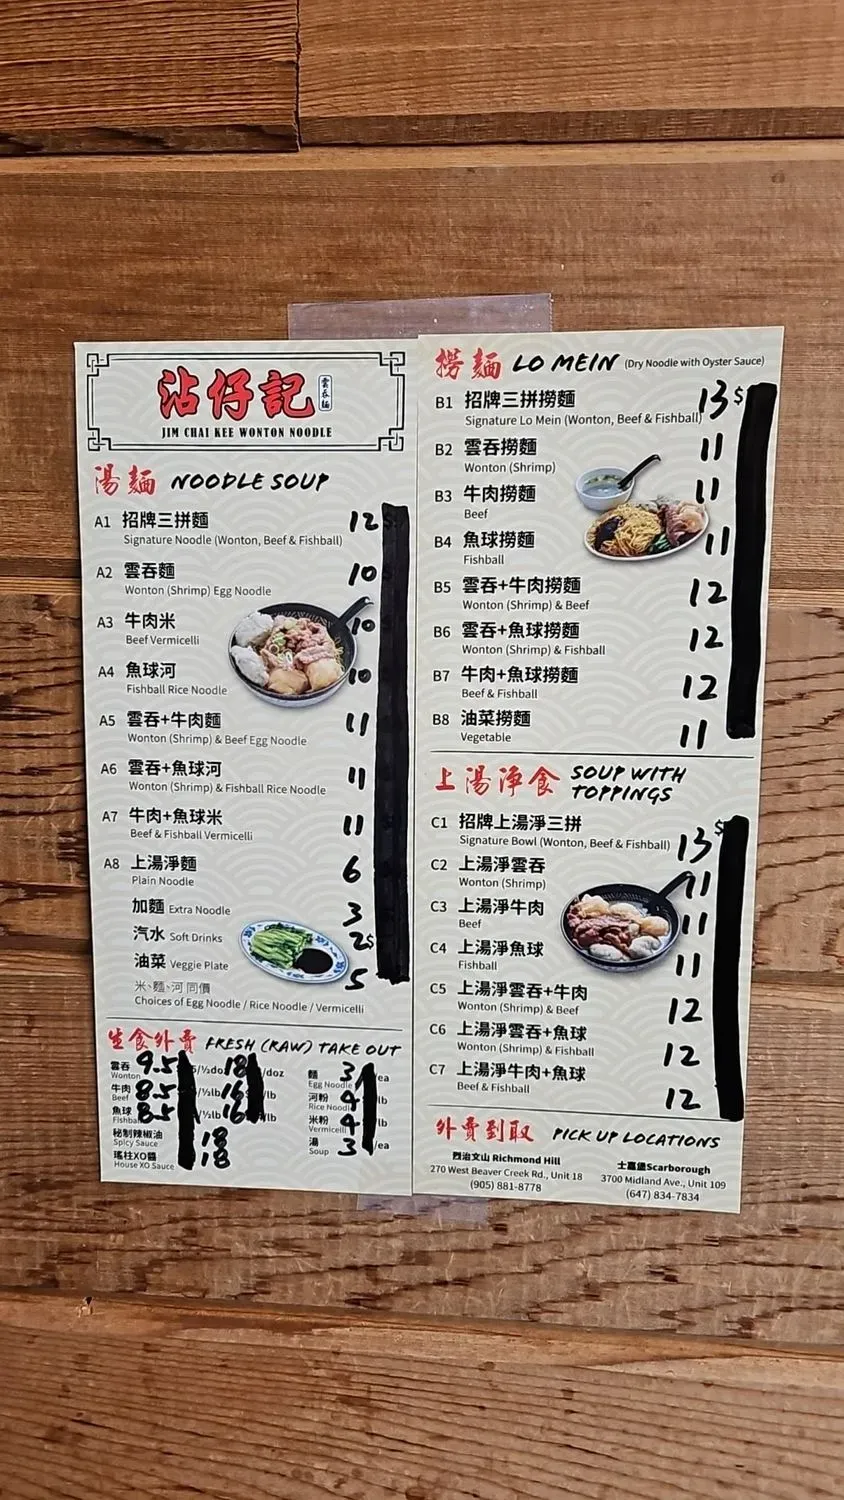 沾仔記 雲吞麵
JIM CHAI KEE WONTON NOODLE
湯麵 NOODLE SOUP
A1 招牌三拼麵 12
Signature Noodle (Wonton, Beef & Fishball)
A2 雲吞麵 10
Wonton (Shrimp) Egg Noodle
A3 牛肉米 10
Beef Vermicelli
A4 魚球河 10
Fishball Rice Noodle
A5 雲吞+牛肉麵 11
Wonton (Shrimp) & Beef Egg Noodle
A6 雲吞+魚球河 11
Wonton (Shrimp) & Fishball Rice Noodle
A7 牛肉+魚球米 11
Beef & Fishball Vermicelli
A8 上湯淨麵 6
Plain Noodle
加麵 Extra Noodle 3
汽水 Soft Drinks 2$
油菜 Veggie Plate 5
米、麵、河 同價
Choices of Egg Noodle / Rice Noodle / Vermicelli
生食外賣 FRESH (RAW) TAKE OUT
雲吞 9.5 /½do 18 /doz
Wonton
牛肉 8.5 /½lb 16 /lb
Beef
魚球 8.5 /½lb 16 /lb
Fishball
秘制辣椒油 18
Spicy Sauce
瑤柱XO醬 18
House XO Sauce
麵 3 /ea
Egg Noodle
河粉 4 /lb
Rice Noodle
米粉 4 /lb
Vermicelli
湯 3 /ea
Soup
撈麵 LO MEIN (Dry Noodle with Oyster Sauce)
B1 招牌三拼撈麵 13 $
Signature Lo Mein (Wonton, Beef & Fishball)
B2 雲吞撈麵 11
Wonton (Shrimp)
B3 牛肉撈麵 11
Beef
B4 魚球撈麵 11
Fishball
B5 雲吞+牛肉撈麵 12
Wonton (Shrimp) & Beef
B6 雲吞+魚球撈麵 12
Wonton (Shrimp) & Fishball
B7 牛肉+魚球撈麵 12
Beef & Fishball
B8 油菜撈麵 11
Vegetable
上湯淨食 SOUP WITH TOPPINGS
C1 招牌上湯淨三拼 13 $
Signature Bowl (Wonton, Beef & Fishball)
C2 上湯淨雲吞 11
Wonton (Shrimp)
C3 上湯淨牛肉 11
Beef
C4 上湯淨魚球 11
Fishball
C5 上湯淨雲吞+牛肉 12
Wonton (Shrimp) & Beef
C6 上湯淨雲吞+魚球 12
Wonton (Shrimp) & Fishball
C7 上湯淨牛肉+魚球 12
Beef & Fishball
外賣到取 PICK UP LOCATIONS
烈治文山 Richmond Hill
270 West Beaver Creek Rd., Unit 18
(905) 881-8778
士嘉堡Scarborough
3700 Midland Ave., Unit 109
(647) 834-7834